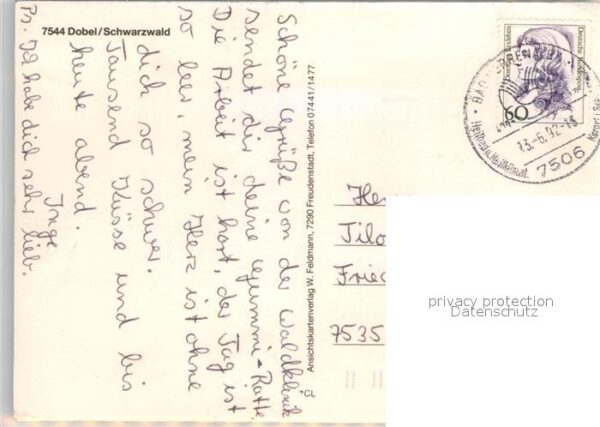 7544 Dobel/Schwarzwald
Schöne Grüße von der Waldklinik
sendet dir deine Gummi-Ratte.
Die Arbeit ist hart, der Tag ist
so leer, mein Herz ist ohne
dich so schwer.
Tausend Küsse und bis
heute abend.
Inge
Ps. Ich habe dich sehr lieb.
Ansichtskartenverlag W. Feldmann, 7290 Freudenstadt, Telefon 07441/1477
CL
Deutsche Bundespost
60
13.-6.92-15
7506
7535
privacy protection
Datenschutz